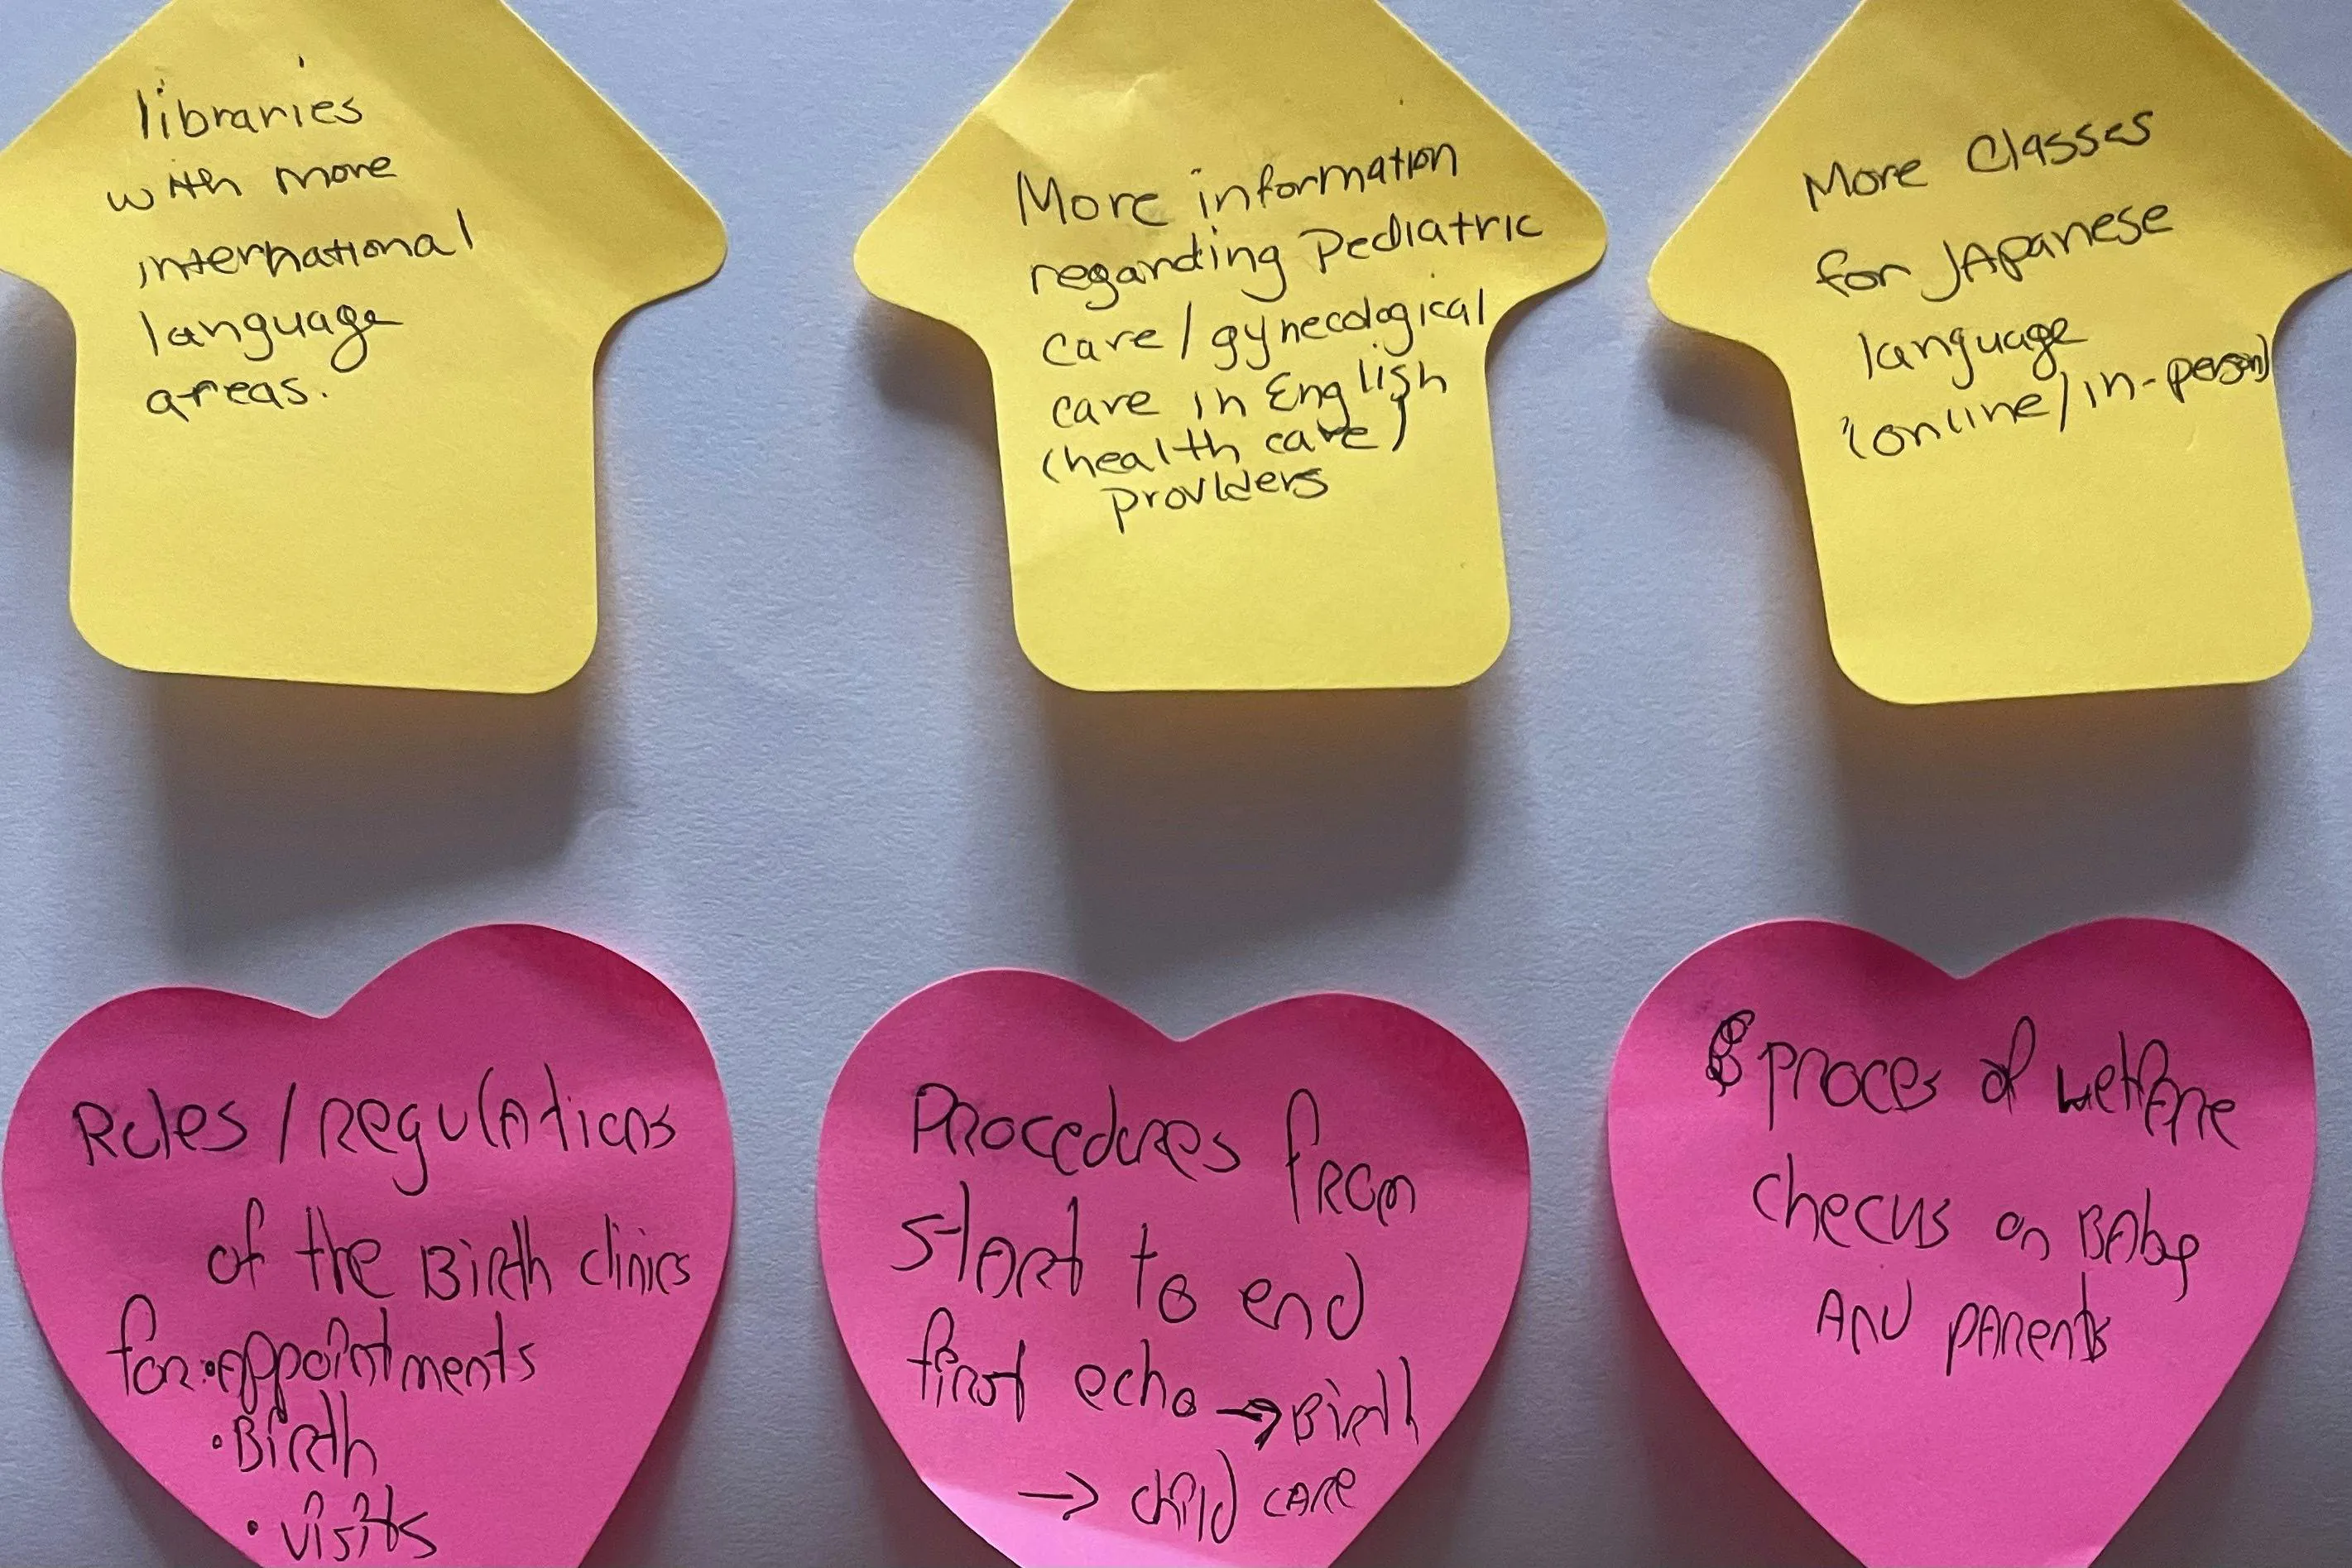 libraries
with more
international
language
areas.
More information
regarding Pediatric
care / gynecological
care in English
(health care)
providers
More Classes
for JApanese
language
(online/in-person)
Rules / regulations
of the Birth clinics
for: • appointments
• Birth
• visits
Procedures from
start to end
first echo → Birth
→ child care
proces of welfare
checks on BAby
AND parents